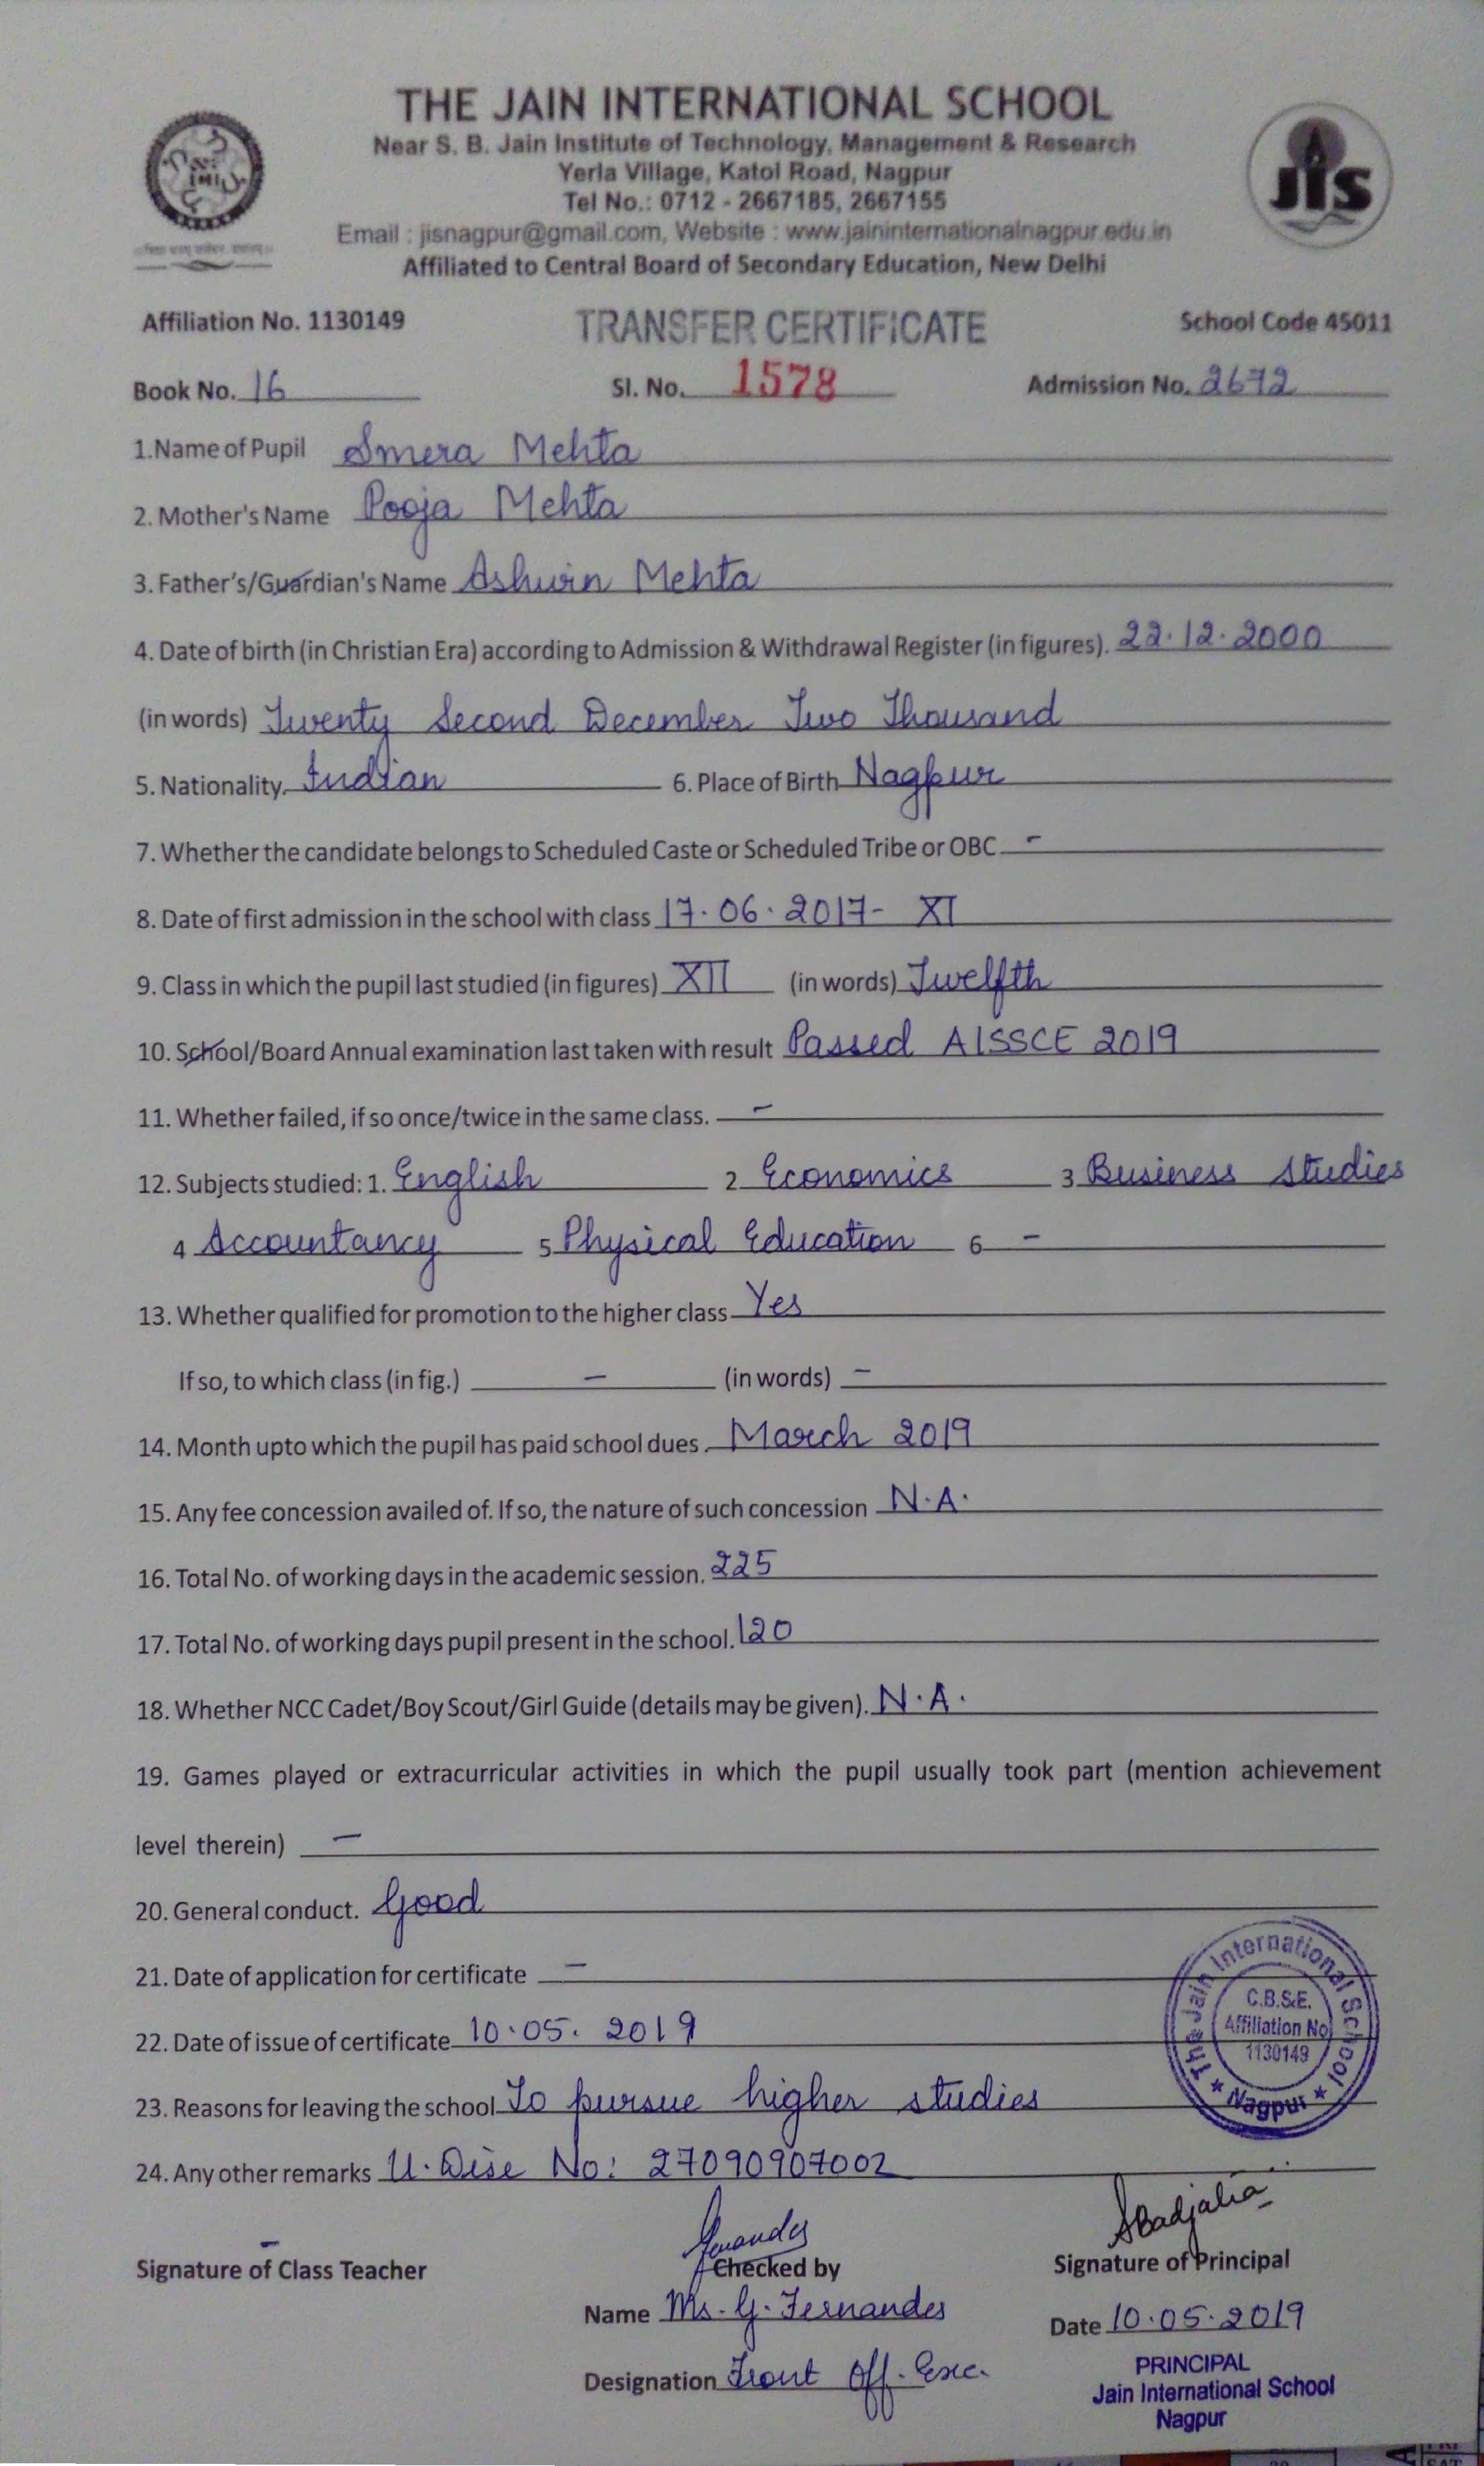 THE JAIN INTERNATIONAL SCHOOL
Near S. B. Jain Institute of Technology, Management & Research
Yerla Village, Katol Road, Nagpur
Tel No.: 0712 - 2667185, 2667155
Email : jisnagpur@gmail.com, Website : www.jaininternationalnagpur.edu.in
Affiliated to Central Board of Secondary Education, New Delhi
JIS
Affiliation No. 1130149 TRANSFER CERTIFICATE School Code 45011
Book No. 16 Sl. No. 1578 Admission No. 2672
1.Name of Pupil Smera Mehta
2. Mother's Name Pooja Mehta
3. Father's/Guardian's Name Ashwin Mehta
4. Date of birth (in Christian Era) according to Admission & Withdrawal Register (in figures). 22.12.2000
(in words) Twenty Second December Two Thousand
5. Nationality. Indian 6. Place of Birth Nagpur
7. Whether the candidate belongs to Scheduled Caste or Scheduled Tribe or OBC -
8. Date of first admission in the school with class 17.06.2017- XI
9. Class in which the pupil last studied (in figures) XII (in words) Twelfth
10. School/Board Annual examination last taken with result Passed AISSCE 2019
11. Whether failed, if so once/twice in the same class. -
12. Subjects studied: 1. English 2 Economics 3 Business Studies
4 Accountancy 5 Physical Education 6 -
13. Whether qualified for promotion to the higher class Yes
If so, to which class (in fig.) - (in words) -
14. Month upto which the pupil has paid school dues. March 2019
15. Any fee concession availed of. If so, the nature of such concession N.A.
16. Total No. of working days in the academic session. 225
17. Total No. of working days pupil present in the school. 120
18. Whether NCC Cadet/Boy Scout/Girl Guide (details may be given). N.A.
19. Games played or extracurricular activities in which the pupil usually took part (mention achievement
level therein) -
20. General conduct. Good
21. Date of application for certificate -
22. Date of issue of certificate 10.05.2019
23. Reasons for leaving the school To pursue higher studies
24. Any other remarks U.Dise No: 27090907002
The Jain International School
C.B.S.E.
Affiliation No
1130149
★ Nagpur ★
Fernandes Sbadjatia
Signature of Class Teacher - Checked by Signature of Principal
Name Ms. G. Fernandes Date 10.05.2019
Designation Front Off. Exec.
PRINCIPAL
Jain International School
Nagpur